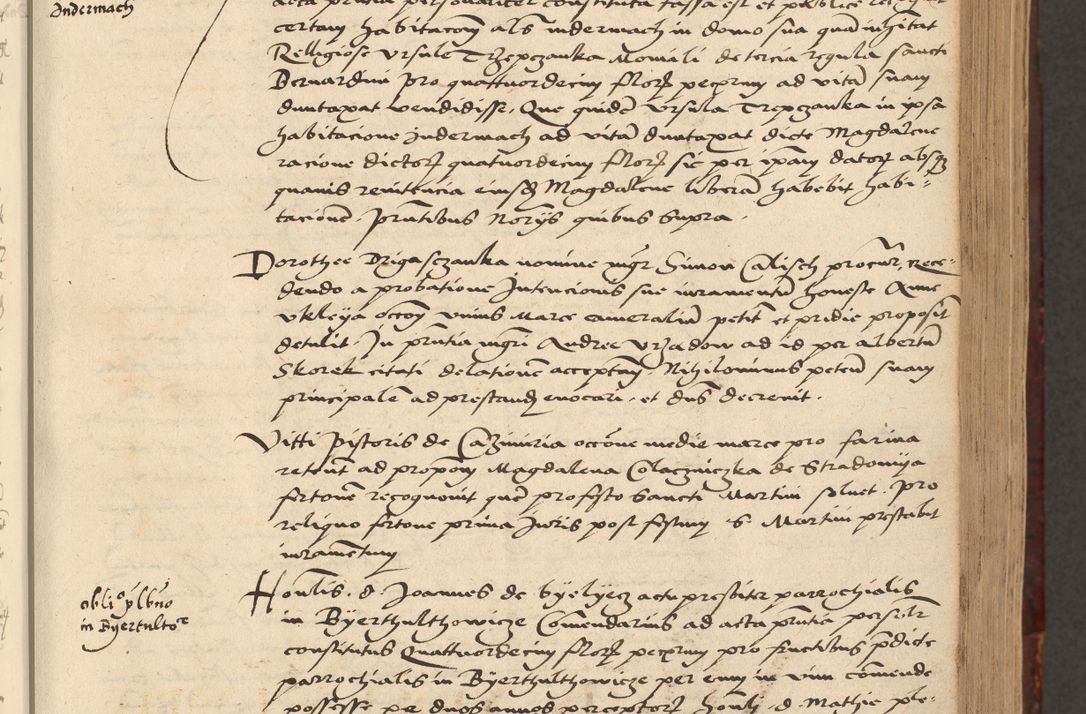 Indermach
acta pntia personaliter constituta fassa est et publice
certam habitacom als indermach in domo sua quam inhitat
Religiose Ursule Trzepczanka Moniali de tercia regula sancti
Bernardini pro quattuordecim florz pecnrum ad vitam suam
duntaxat vendidisse. Que quidem Ursula Trepczanka in ipsa
habitacione indermach ad vitam duntaxat dicte Magdalene
racione dictorz quatuordecim florz sic per ipsam datorz absqz
quavis renitencia eiusdem Magdalene liberam habebit habi-
tacionem. pntibus Norys quibus supra.
Dorothee Drigasczanka nomine mgr Simon Calisch procur, rece-
dendo a probatione Intencionis sue iuramentum honeste Anne
Ukleyja occom unius Marce numeralium petit et pridie proposit
detulit. In pntia mgri Andree Urzadow ad id per albertum
Skorek citati delationem acceptam. Nihilominus petens suam
principalem ad prestand evocari. et dns decrevit.
Vitti pistoris de Cazimiria occone medie marce pro farina
retent ad propom Magdalena Colaczniczka de Stradomija
fertonem recognovit quem pro festo sancti Martini solvet. pro
reliquo fertone prima Juris post festum S. Martini prestabit
iuramentum
obligo plbno
in Byertulto
Honlis. d. Joannes de byelyez actu presbiter parrochialis
in Byerthulthowicze Comendarius ad acta pntia personlr
constitutus Quattuordecim florz pecnrum pro fructibus predicte
parrochialis in Byerthulthowicze per eum in vim comende
possesse per duos annos perceptorz honli. d. Mathie ple-